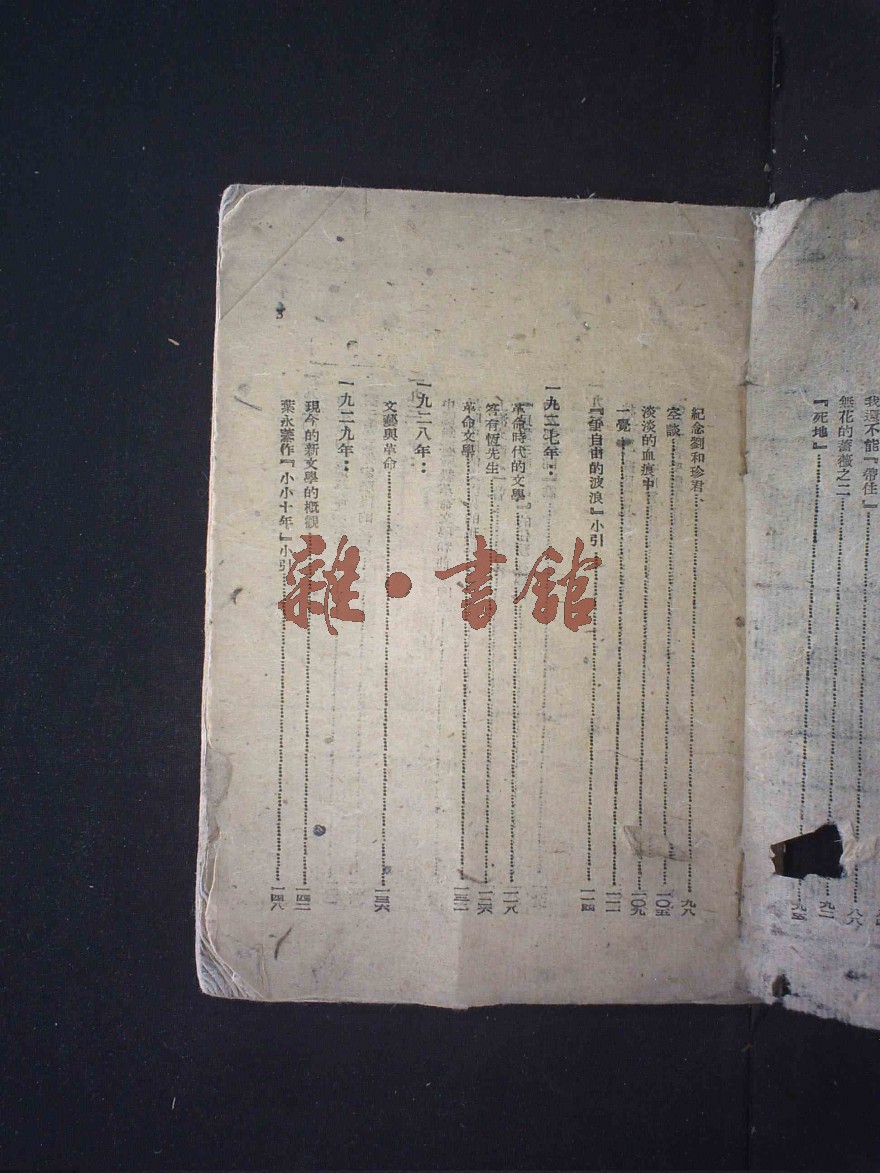 我還不能『帶住』……八八
無花的薔薇之二……九一
『死地』……九五
紀念劉和珍君……九八
空談……一〇五
淡淡的血痕中……一〇九
一覺……一一一
『爭自由的波浪』小引……一一四
一九二七年：
革命時代的文學……一一八
答有恆先生……一二六
革命文學……一三二
一九二八年：
文藝與革命……一三六
一九二九年：
現今的新文學的概觀……一四二
葉永蓁作『小小十年』小引……一四八
雜·書館